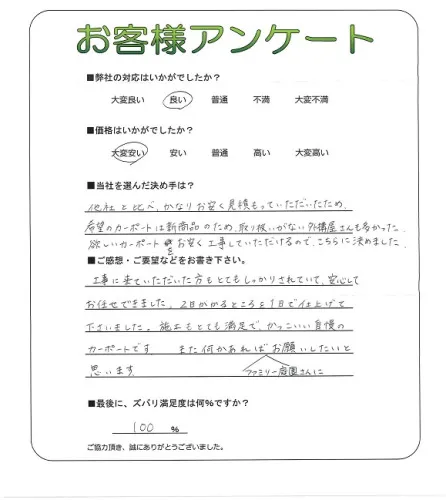 お客様アンケート
■弊社の対応はいかがでしたか？
大変良い 良い 普通 不満 大変不満
■価格はいかがでしたか？
大変安い 安い 普通 高い 大変高い
■当社を選んだ決め手は？
他社と比べ、かなりお安く見積もっていただいたため。
希望のカーポートは新商品のため、取り扱いがない外構屋さんも多かった。
欲しいカーポートをお安く工事していただけるので、こちらに決めました。
■ご感想・ご要望などをお書き下さい。
工事に来ていただいた方もとてもしっかりされていて、安心して
お任せできました。2日かかるところを1日で仕上げて
下さいました。施工もとても満足で、かっこいい自慢の
カーポートです また何かあればお願いしたいと
思います ファミリー庭園さんに
■最後に、ズバリ満足度は何％ですか？
100 ％
ご協力頂き、誠にありがとうございました。